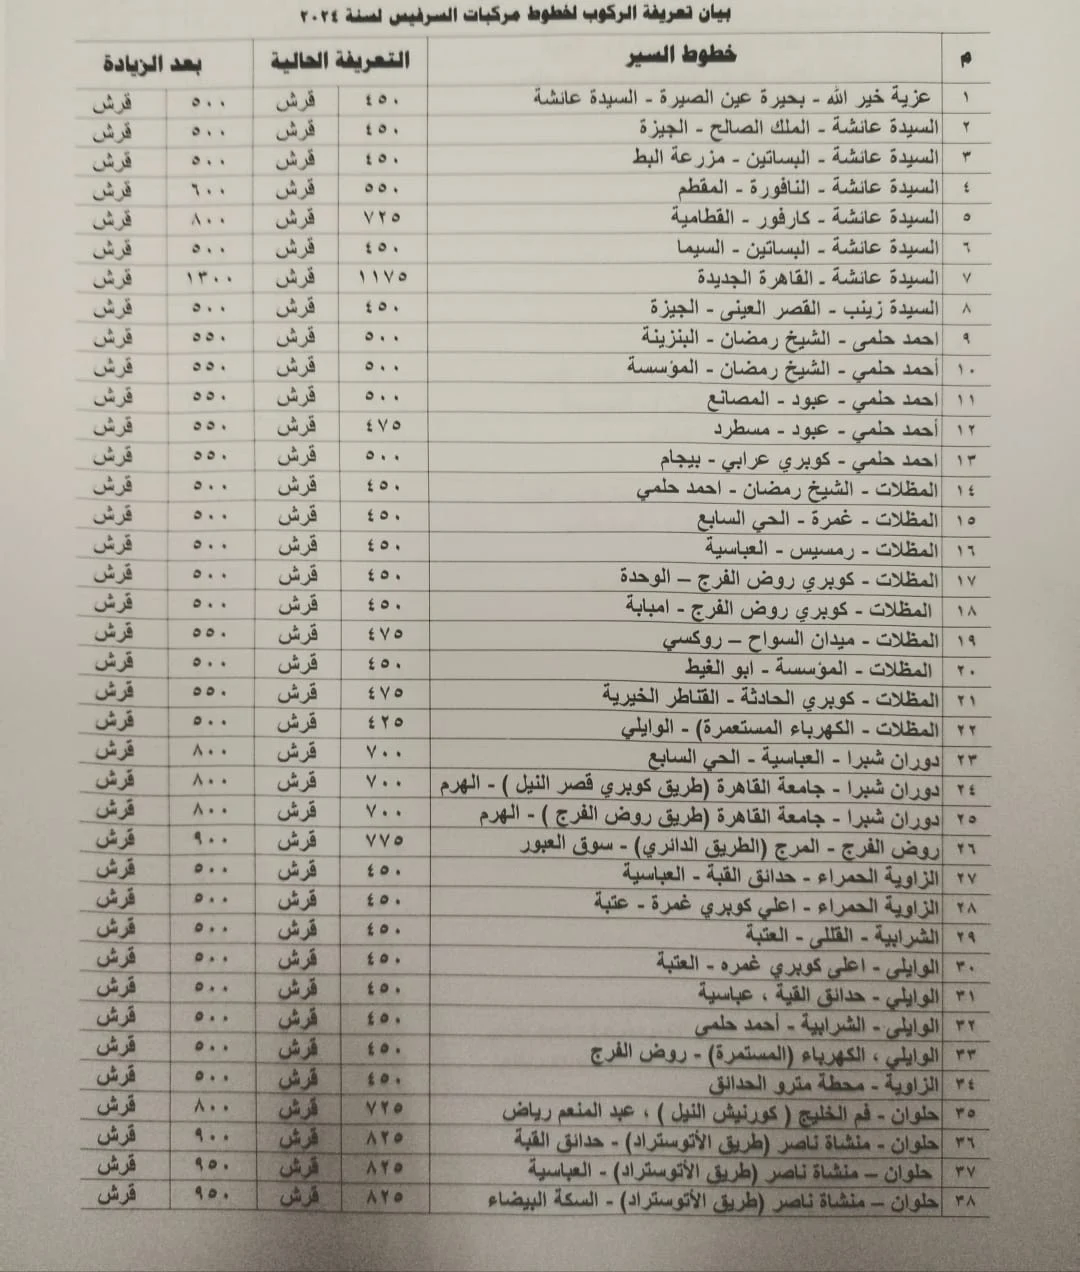 بيان تعريفة الركوب لخطوط مركبات السرفيس لسنة ٢٠٢٤
م خطوط السير التعريفة الحالية بعد الزيادة
١ عزبة خير الله - بحيرة عين الصيرة - السيدة عائشة ٤٥٠ قرش ٥٠٠ قرش
٢ السيدة عائشة - الملك الصالح - الجيزة ٤٥٠ قرش ٥٠٠ قرش
٣ السيدة عائشة - البساتين - مزرعة البط ٤٥٠ قرش ٥٠٠ قرش
٤ السيدة عائشة - النافورة - المقطم ٥٥٠ قرش ٦٠٠ قرش
٥ السيدة عائشة - كارفور - القطامية ٧٢٥ قرش ٨٠٠ قرش
٦ السيدة عائشة - البساتين - السيما ٤٥٠ قرش ٥٠٠ قرش
٧ السيدة عائشة - القاهرة الجديدة ١١٧٥ قرش ١٣٠٠ قرش
٨ السيدة زينب - القصر العينى - الجيزة ٤٥٠ قرش ٥٠٠ قرش
٩ احمد حلمى - الشيخ رمضان - البنزينة ٥٠٠ قرش ٥٥٠ قرش
١٠ أحمد حلمي - الشيخ رمضان - المؤسسة ٥٠٠ قرش ٥٥٠ قرش
١١ احمد حلمي - عبود - المصانع ٥٠٠ قرش ٥٥٠ قرش
١٢ أحمد حلمي - عبود - مسطرد ٤٧٥ قرش ٥٥٠ قرش
١٣ احمد حلمي - كوبري عرابي - بيجام ٥٠٠ قرش ٥٥٠ قرش
١٤ المظلات - الشيخ رمضان - احمد حلمي ٤٥٠ قرش ٥٠٠ قرش
١٥ المظلات - غمرة - الحي السابع ٤٥٠ قرش ٥٠٠ قرش
١٦ المظلات - رمسيس - العباسية ٤٥٠ قرش ٥٠٠ قرش
١٧ المظلات - كوبري روض الفرج – الوحدة ٤٥٠ قرش ٥٠٠ قرش
١٨ المظلات - كوبري روض الفرج - امبابة ٤٥٠ قرش ٥٠٠ قرش
١٩ المظلات - ميدان السواح – روكسي ٤٧٥ قرش ٥٥٠ قرش
٢٠ المظلات - المؤسسة - ابو الغيط ٤٥٠ قرش ٥٠٠ قرش
٢١ المظلات - كوبري الحادثة - القناطر الخيرية ٤٧٥ قرش ٥٥٠ قرش
٢٢ المظلات - الكهرباء المستعمرة) - الوايلي ٤٢٥ قرش ٥٠٠ قرش
٢٣ دوران شبرا - العباسية - الحي السابع ٧٠٠ قرش ٨٠٠ قرش
٢٤ دوران شبرا - جامعة القاهرة (طريق كوبري قصر النيل ) - الهرم ٧٠٠ قرش ٨٠٠ قرش
٢٥ دوران شبرا - جامعة القاهرة (طريق روض الفرج ) - الهرم ٧٠٠ قرش ٨٠٠ قرش
٢٦ روض الفرج - المرج (الطريق الدائري) - سوق العبور ٧٧٥ قرش ٩٠٠ قرش
٢٧ الزاوية الحمراء - حدائق القبة - العباسية ٤٥٠ قرش ٥٠٠ قرش
٢٨ الزاوية الحمراء - اعلي كوبري غمرة - عتبة ٤٥٠ قرش ٥٠٠ قرش
٢٩ الشرابية - القللى - العتبة ٤٥٠ قرش ٥٠٠ قرش
٣٠ الوايلي - اعلى كوبري غمره - العتبة ٤٥٠ قرش ٥٠٠ قرش
٣١ الوايلي - حدائق القبة ، عباسية ٤٥٠ قرش ٥٠٠ قرش
٣٢ الوايلي - الشرابية - أحمد حلمى ٤٥٠ قرش ٥٠٠ قرش
٣٣ الوايلي ، الكهرباء (المستمرة) - روض الفرج ٤٥٠ قرش ٥٠٠ قرش
٣٤ الزاوية - محطة مترو الحدائق ٤٥٠ قرش ٥٠٠ قرش
٣٥ حلوان - فم الخليج ( كورنيش النيل ) ، عبد المنعم رياض ٧٢٥ قرش ٨٠٠ قرش
٣٦ حلوان - منشاة ناصر (طريق الأتوستراد) - حدائق القبة ٨٢٥ قرش ٩٠٠ قرش
٣٧ حلوان – منشاة ناصر (طريق الأتوستراد) - العباسية ٨٢٥ قرش ٩٥٠ قرش
٣٨ حلوان – منشاة ناصر (طريق الأتوستراد) - السكة البيضاء ٨٢٥ قرش ٩٥٠ قرش